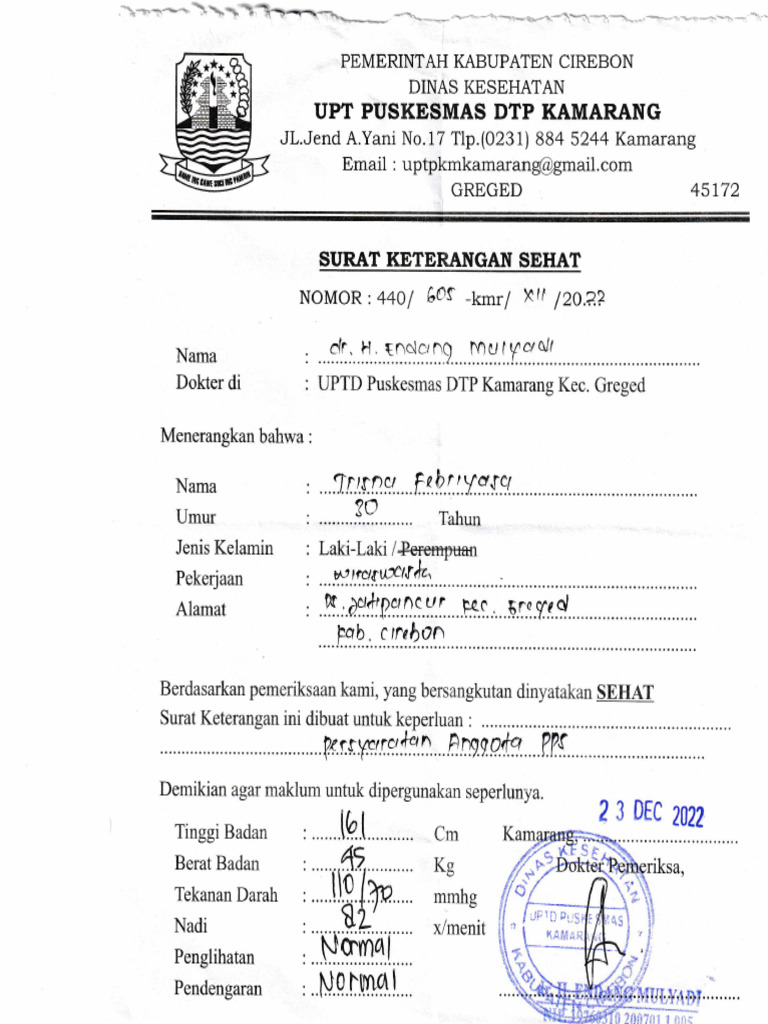 PEMERINTAH KABUPATEN CIREBON
DINAS KESEHATAN
UPT PUSKESMAS DTP KAMARANG
JL.Jend A.Yani No.17 Tlp.(0231) 884 5244 Kamarang
Email : uptpkmkamarang@gmail.com
GREGED 45172
SURAT KETERANGAN SEHAT
NOMOR : 440/ 605 -kmr/ XII /20.22
Nama : dr. H. Endang Mulyadi
Dokter di : UPTD Puskesmas DTP Kamarang Kec. Greged
Menerangkan bahwa :
Nama : Trisna Febriyasa
Umur : 30 Tahun
Jenis Kelamin : Laki-Laki / Perempuan
Pekerjaan : wiraswasta
Alamat : Ds. Jatipancur kec. Greged
kab. cirebon
Berdasarkan pemeriksaan kami, yang bersangkutan dinyatakan SEHAT
Surat Keterangan ini dibuat untuk keperluan :
persyaratan Anggota PPS
Demikian agar maklum untuk dipergunakan seperlunya.
23 DEC 2022
Tinggi Badan : 161 Cm Kamarang,
Berat Badan : 45 Kg Dokter Pemeriksa,
Tekanan Darah : 110/70 mmhg
Nadi : 82 x/menit
Penglihatan : Normal
Pendengaran : Normal
DINAS KESEHATAN
UPTD PUSKESMAS
KAMARANG
KABUPATEN CIREBON
dr. H. ENDANG MULYADI
NIP. 19760310 200701 1 005